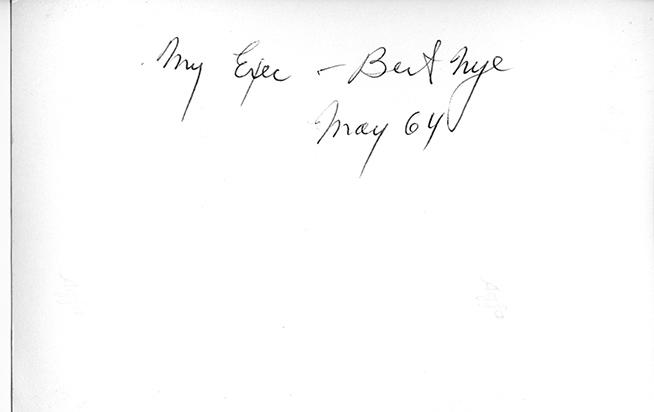 My Exec - Bert Nye
May 64